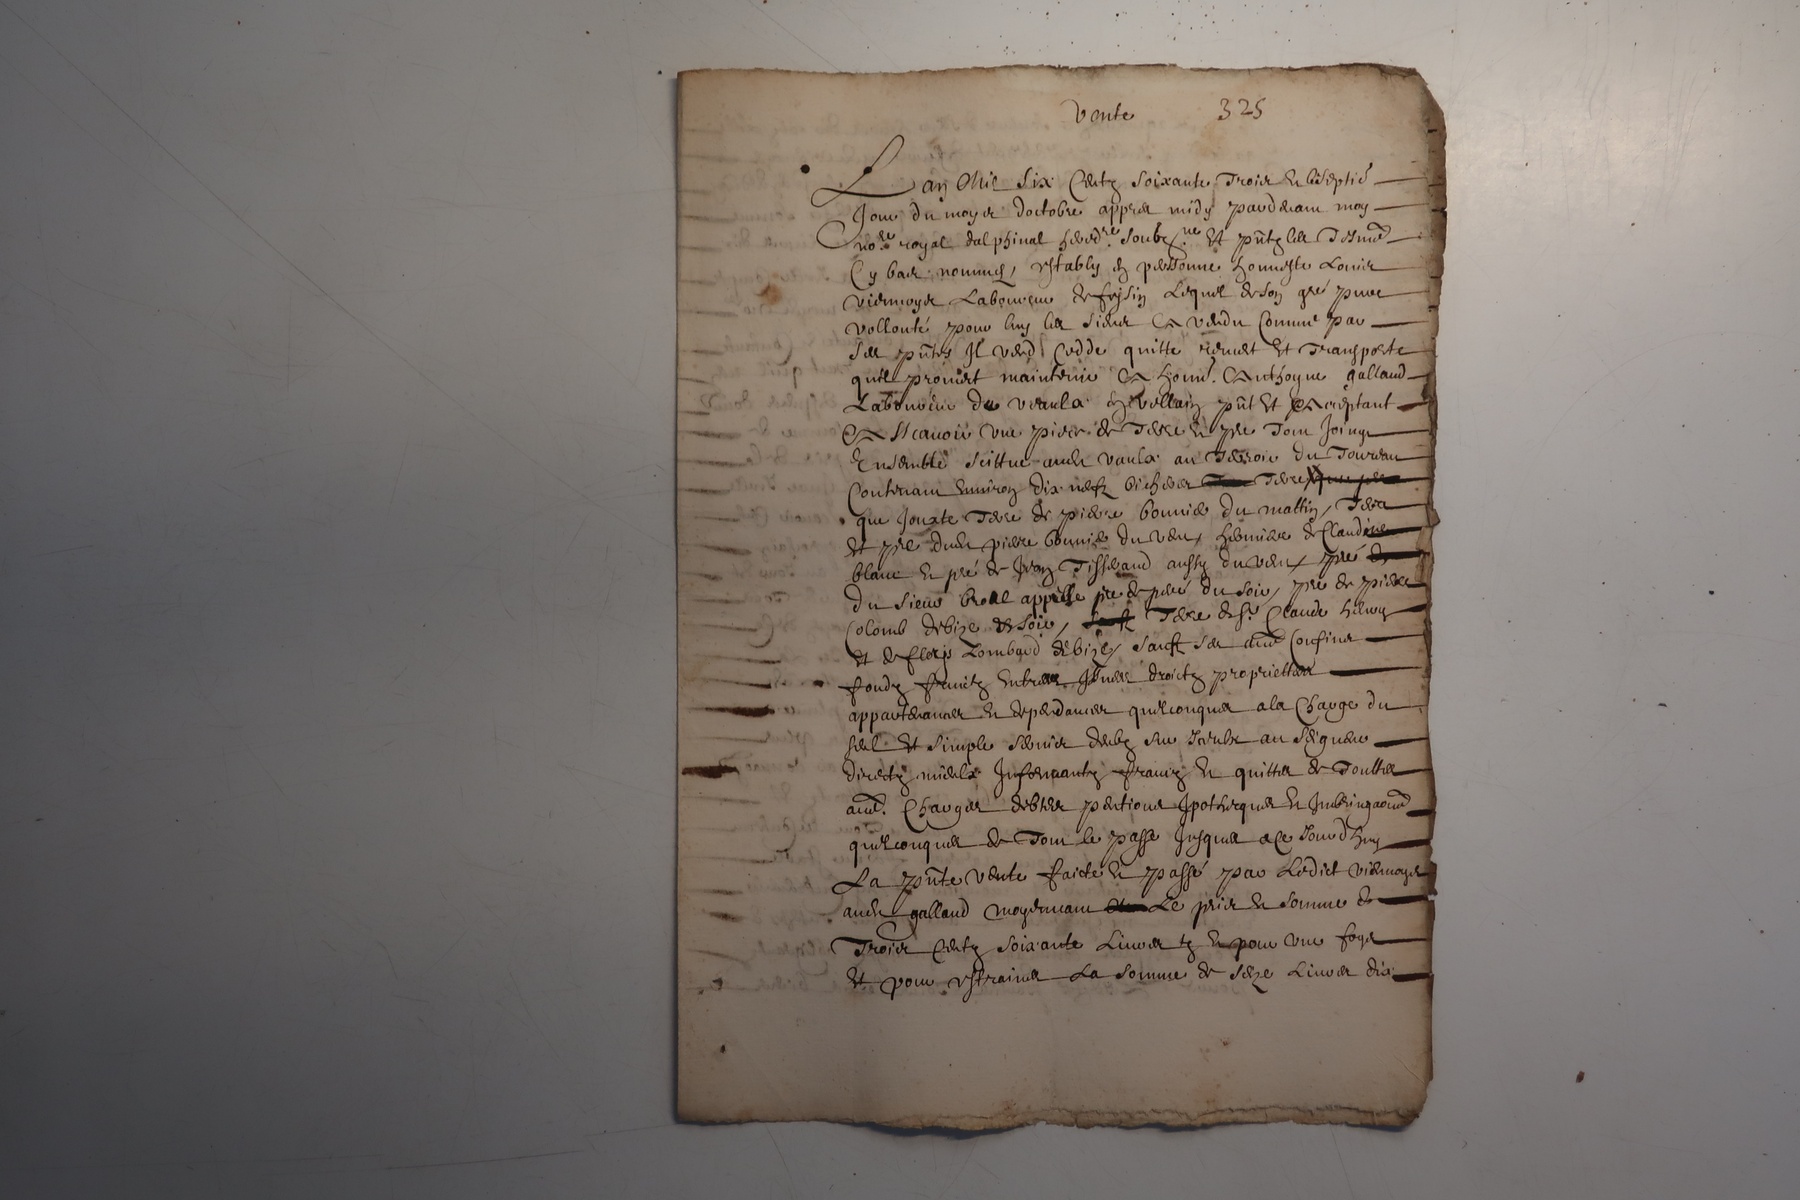 vente 325
Lan Mil six Centz soixante Trois et le septie
Jour du moys doctobre appres midy pardevant moy
nore royal dalphinal hered.re soubz.ne Et pntz les Tesmo
Cy bas nommes, estably en personne honneste Louis
viermoys Laboureur de feysin Lequel de son gré pure
vollonté pour luy les siens A vendu Comme par
ses pntes Il vend Cedde quitte remet Et Transporte
quil promet maintenir A honn. Anthoyne galland
Laboureur de vaulx en vellain pnt Et Acceptant
A Scavoir une piece de Terre et pre Tout Joingt
Ensemble scittue audt vaulx au Terroir du
Contenant environ dix neufz bicheres Terre
que Jouxte Terre de pierre bonnier du mattin, Terre
Et pre dudt pierre bonnier du vent, de Claudine
blanc et pré de Tisserand aussy du vent, pré
du sieur appelle pre du soir, pre de pierre
Colomb debize Soir, Terre de sr. Claude
Et de Lombard debize, sauf ses Confins
fondz fruictz droictz proprietteres
appartenances et dependances quelconques a la Charge du
Et simple servis deubz sur Icelux au seigneur
directz franz et quitter de Touttes
Charges debtes pentions Ipothecques et
quelconques de Tout le passe Jusques a Ce Jourdhuy
La pnte vente faicte et passé par Ledict viermoys
audt galland moyennant Le prix et somme de
Trois Centz soixante Livres tz et pour une foys
Et pour estraines La somme de seze Livres dix